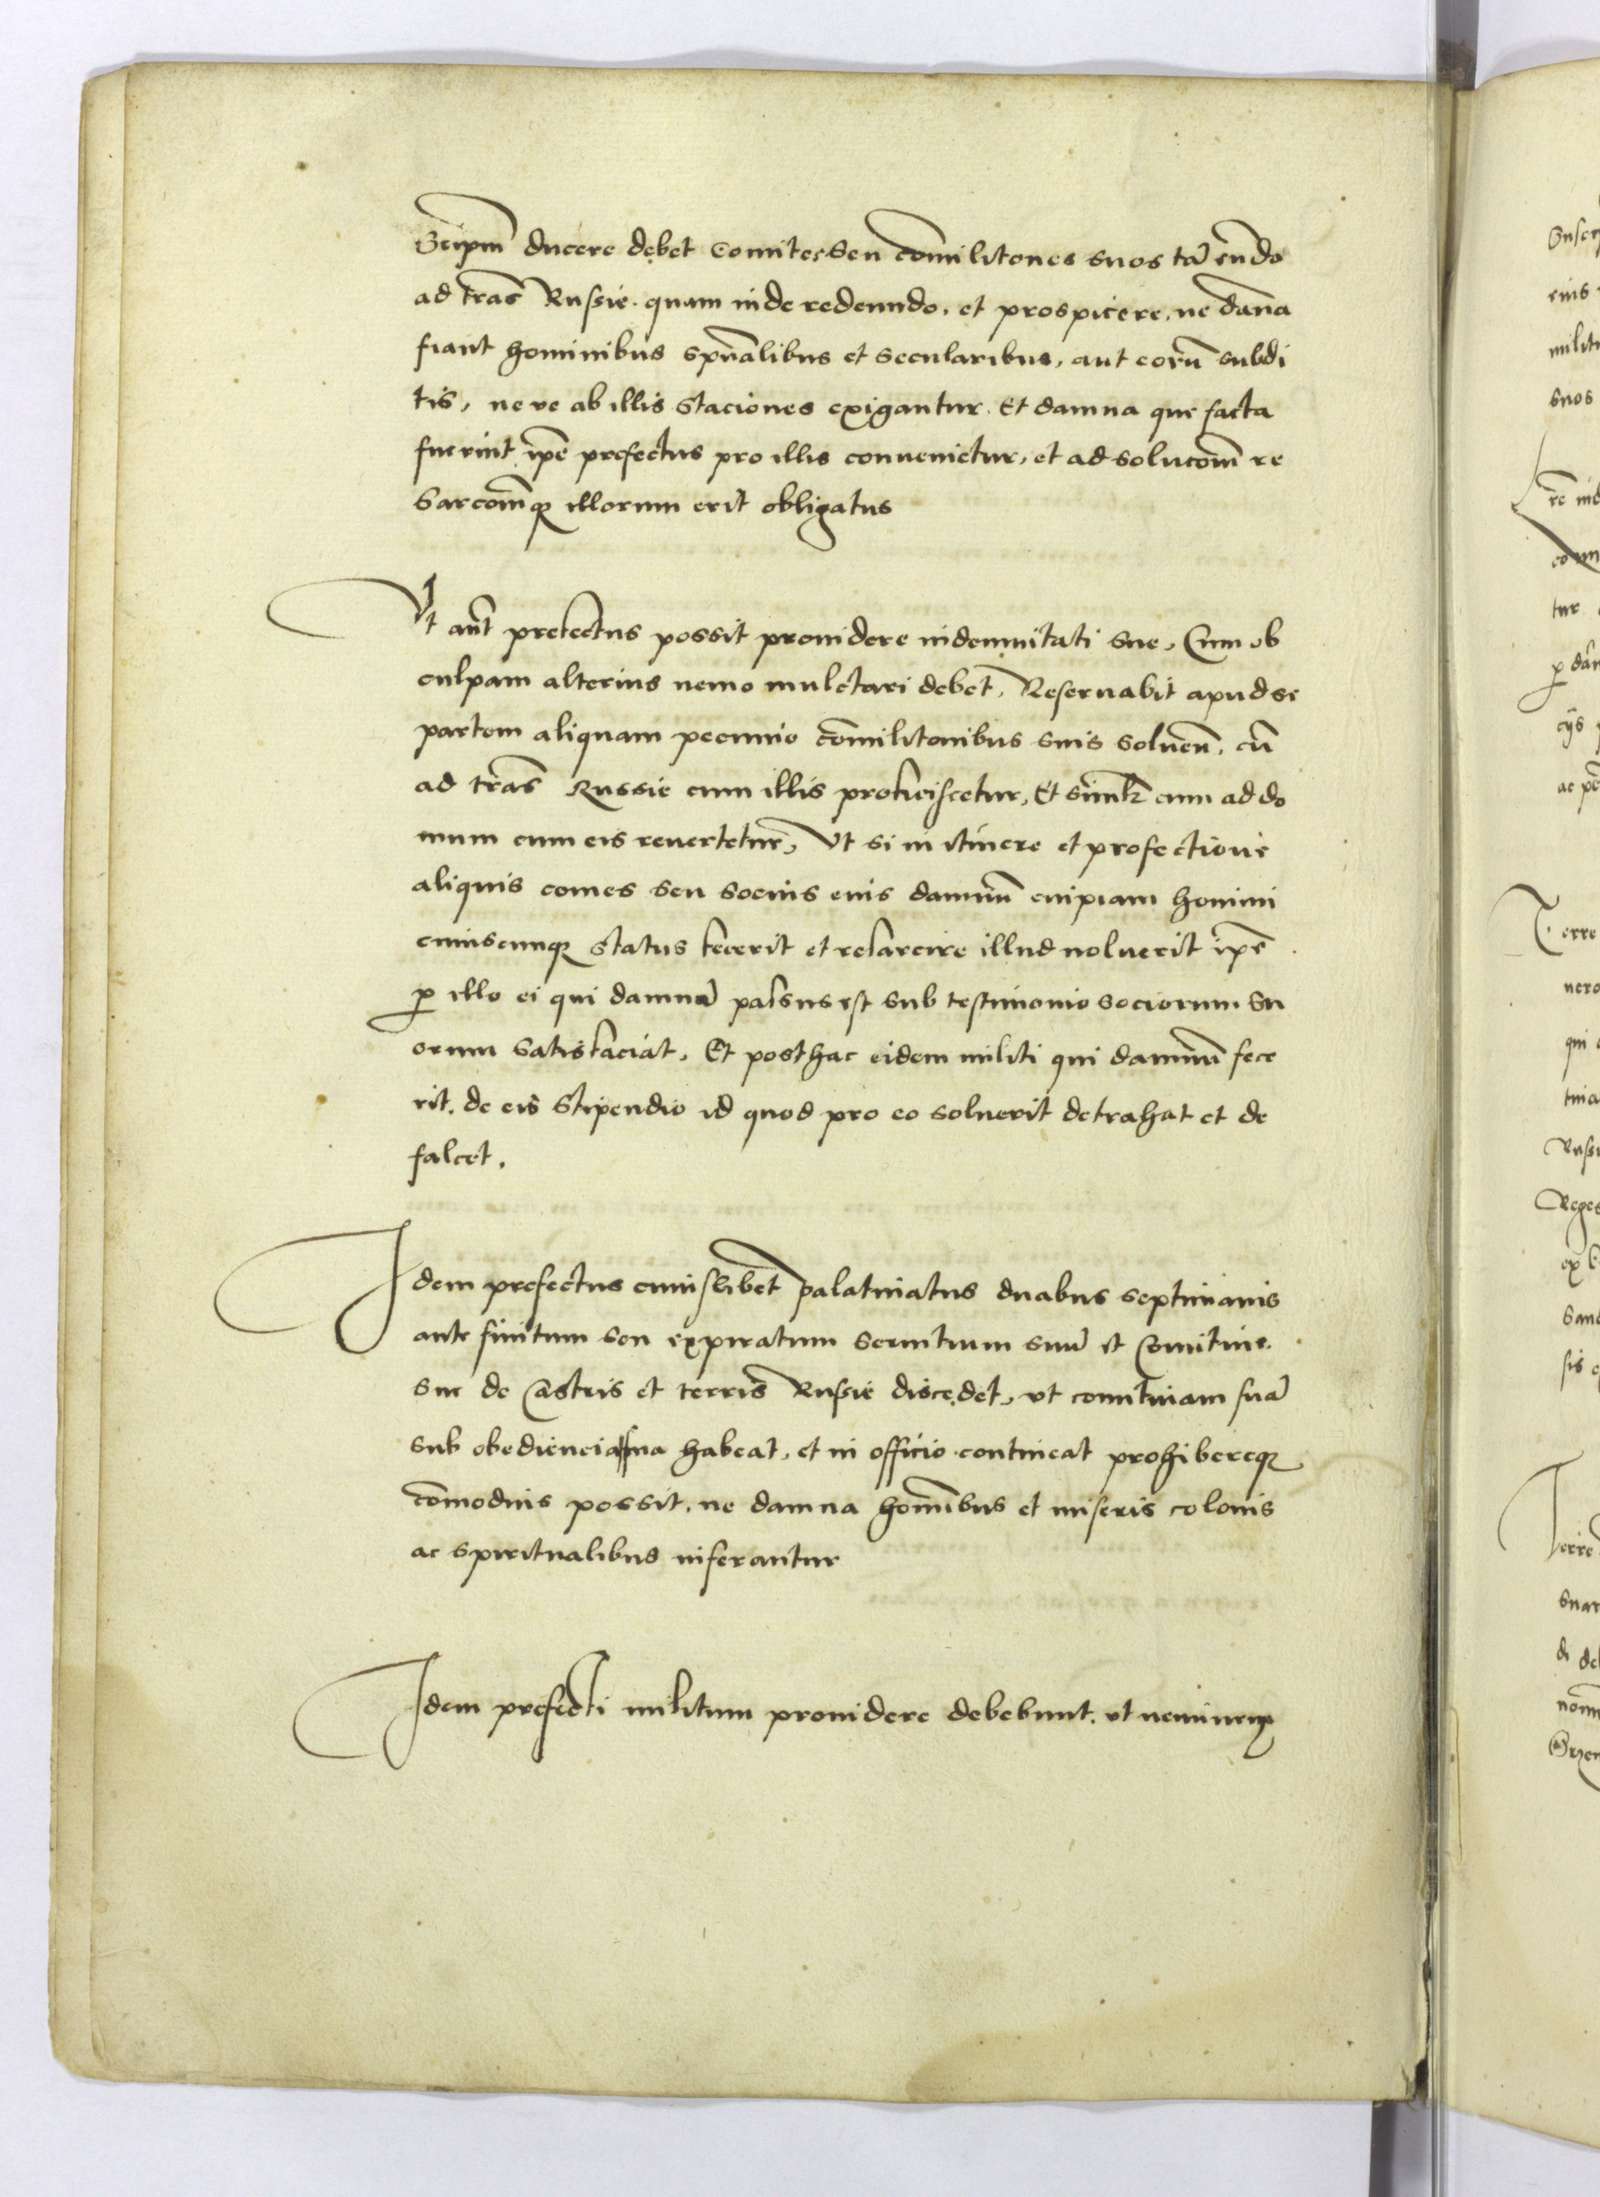 Seipm̄ ducere debet Comites seu com̄ilitones suos ta᷉ eundo
ad tr̄as Russie quam inde redeundo, et prospicere, ne dan̄a
fiant hominibus sp̄ualibus et secularibus, aut eorū subdi
tis, ne ve ab illis staciones exigantur. Et damna que facta
fuerint ip̄e prefectus pro illis convenietur, et ad solucōm re
sarcōmqȝ illorum erit obligatus
Vt aūt prefectus possit providere indemnitati sue, Cum ob
culpam alterius nemo mulctari debet, Reservabit apud se
partem aliquam pecunie com̄ilitonibus suis solvēn, cū
ad tr̄as Russie cum illis proficiscetur, Et simlr̄ cum ad do
mum cum eis revertetur, Vt si in itinere et profectione
aliquis comes seu socius eius damnū cuipiam homini
cuiuscunqȝ status fecerit et resarcire illud noluerit ip̄e
ꝓ illo ei qui damnū passus est sub testimonio sociorum su
orum satisfaciat, Et posthac eidem militi qui damnū fece
rit, de eis stipendio id quod pro eo solverit detrahat et de
falcet.
Idem prefectus cuiuslibet palatinatus duabus septimanis
ante finitum seu expiratum servitium suū et Comitive
sue de Castris et terris Russie discedet, ut comitivam suā
sub obediencia sua habeat, et in officio contineat prohibereqȝ
com̄odius possit, ne damna hom̄ibus et miseris colonis
ac spiritualibus inferantur
Idem prefecti militum providere debebunt, ut neminem